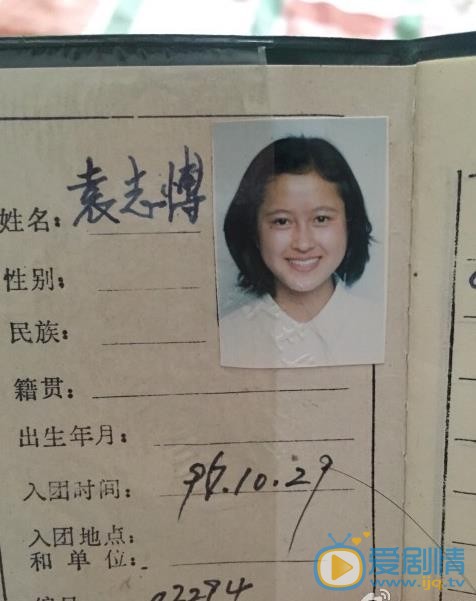 姓名：袁志博
性别：
民族：
籍贯：
出生年月：
入团时间：96.10.29
入团地点
和单位：
编号 02294
爱剧情
www.ijq.tv